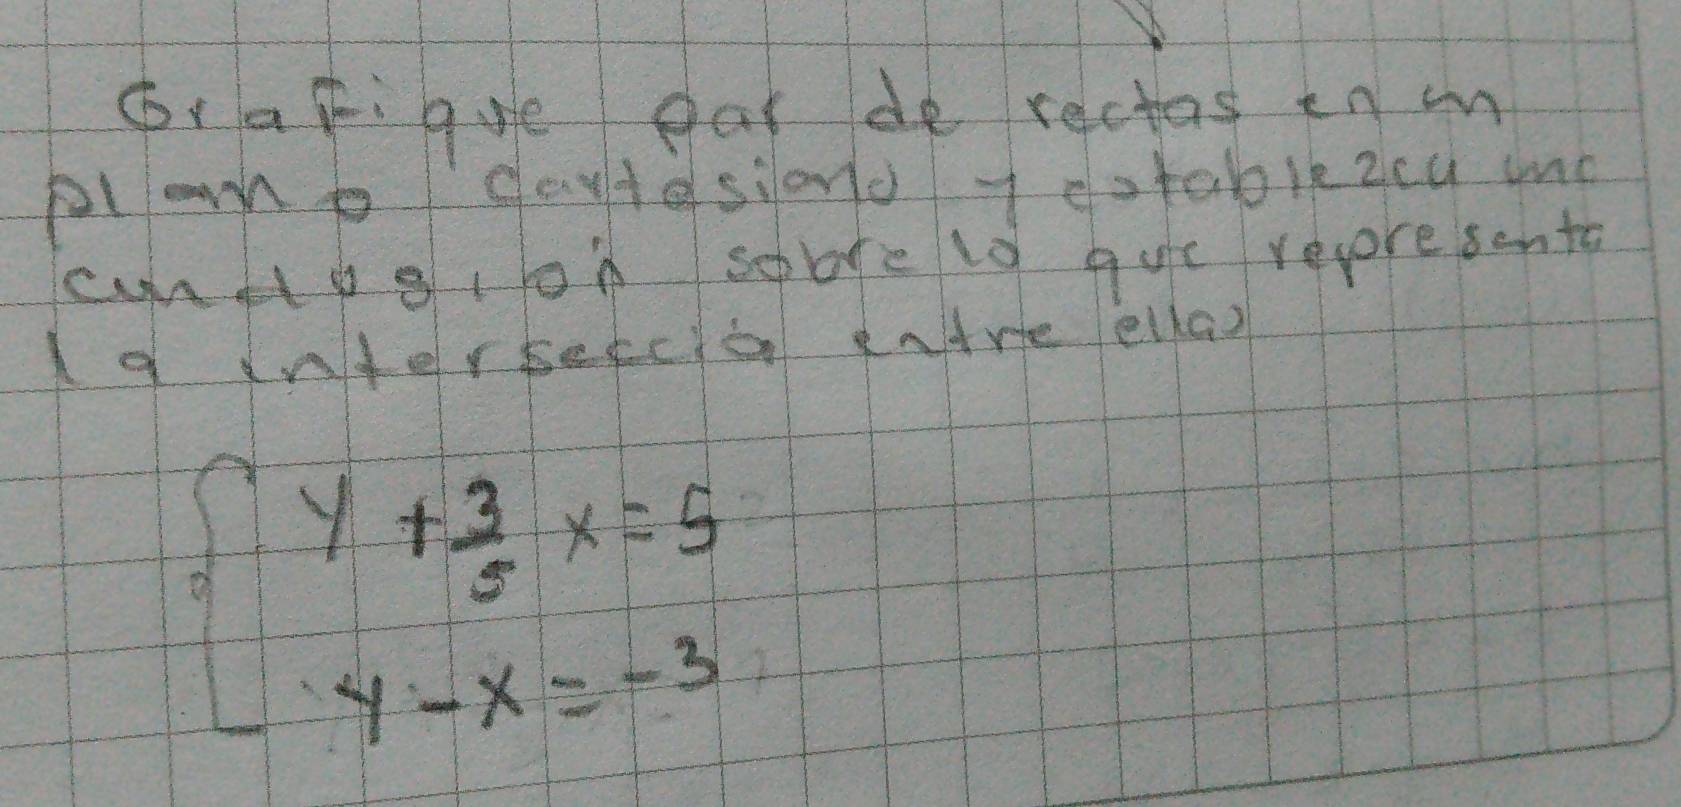 Grafique par de rectas en un
plano cartesiano y establezca una
conclusión sobre lo que representa
la intersección entre ellas
y + 3/5 x = 5
y - x = -3